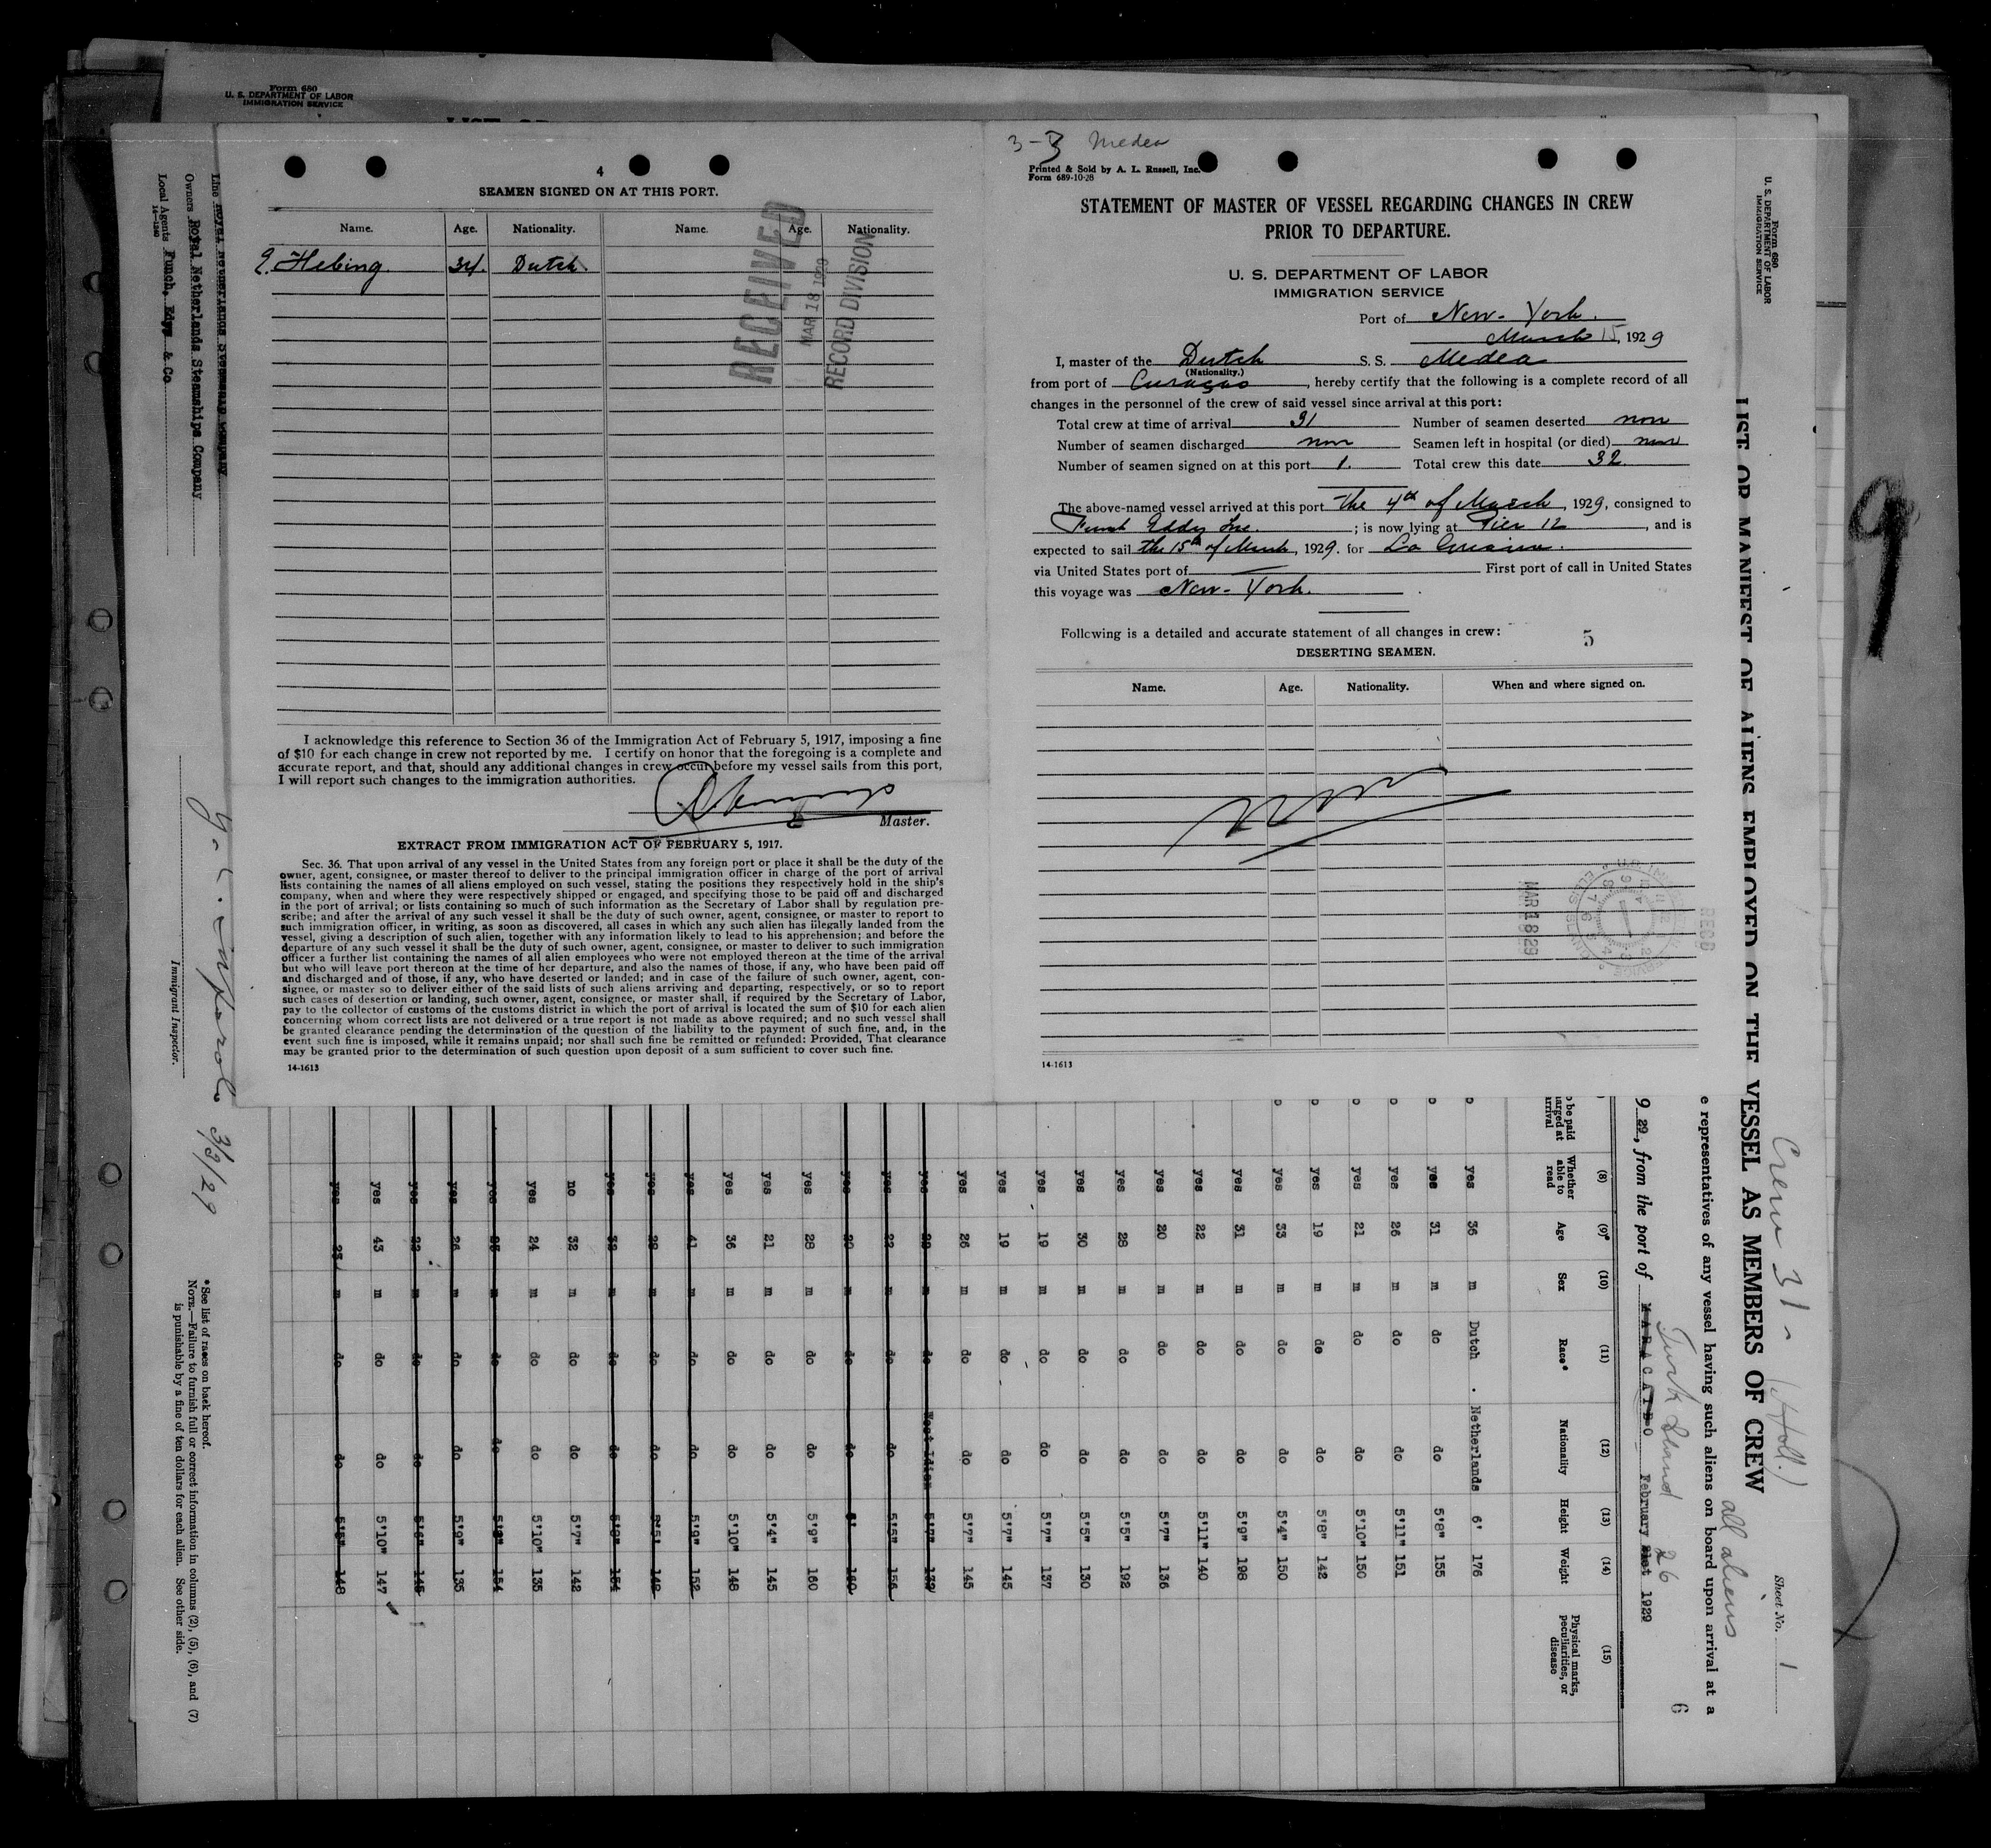 Form 680
U. S. DEPARTMENT OF LABOR
IMMIGRATION SERVICE
4
SEAMEN SIGNED ON AT THIS PORT.
Name. Age. Nationality. Name. Age. Nationality.
Hebing. 34. Dutch
RECEIVED
MAR 18 1929
RECORD DIVISION
I acknowledge this reference to Section 36 of the Immigration Act of February 5, 1917, imposing a fine
of $10 for each change in crew not reported by me. I certify on honor that the foregoing is a complete and
accurate report, and that, should any additional changes in crew occur before my vessel sails from this port,
I will report such changes to the immigration authorities.
Master.
EXTRACT FROM IMMIGRATION ACT OF FEBRUARY 5, 1917.
Sec. 36. That upon arrival of any vessel in the United States from any foreign port or place it shall be the duty of the
owner, agent, consignee, or master thereof to deliver to the principal immigration officer in charge of the port of arrival
lists containing the names of all aliens employed on such vessel, stating the positions they respectively hold in the ship's
company, when and where they were respectively shipped or engaged, and specifying those to be paid off and discharged
in the port of arrival; or lists containing so much of such information as the Secretary of Labor shall by regulation pre-
scribe; and after the arrival of any such vessel it shall be the duty of such owner, agent, consignee, or master to report to
such immigration officer, in writing, as soon as discovered, all cases in which any such alien has illegally landed from the
vessel, giving a description of such alien, together with any information likely to lead to his apprehension; and before the
departure of any such vessel it shall be the duty of such owner, agent, consignee, or master to deliver to such immigration
officer a further list containing the names of all alien employees who were not employed thereon at the time of the arrival
but who will leave port thereon at the time of her departure, and also the names of those, if any, who have been paid off
and discharged and of those, if any, who have deserted or landed; and in case of the failure of such owner, agent, con-
signee, or master so to deliver either of the said lists of such aliens arriving and departing, respectively, or so to report
such cases of desertion or landing, such owner, agent, consignee, or master shall, if required by the Secretary of Labor,
pay to the collector of customs of the customs district in which the port of arrival is located the sum of $10 for each alien
concerning whom correct lists are not delivered or a true report is not made as above required; and no such vessel shall
be granted clearance pending the determination of the question of the liability to the payment of such fine, and, in the
event such fine is imposed, while it remains unpaid; nor shall such fine be remitted or refunded: Provided, That clearance
may be granted prior to the determination of such question upon deposit of a sum sufficient to cover such fine.
14-1613
3-3 Medea
Printed & Sold by A. L. Russell, Inc.
Form 689-10-28
STATEMENT OF MASTER OF VESSEL REGARDING CHANGES IN CREW
PRIOR TO DEPARTURE.
U. S. DEPARTMENT OF LABOR
IMMIGRATION SERVICE
Port of New-York.
March 15, 1929
I, master of the Dutch S. S. Medea
(Nationality.)
from port of Curaçao, hereby certify that the following is a complete record of all
changes in the personnel of the crew of said vessel since arrival at this port:
Total crew at time of arrival 31 Number of seamen deserted non
Number of seamen discharged non Seamen left in hospital (or died) non
Number of seamen signed on at this port 1. Total crew this date 32
The above-named vessel arrived at this port the 4th of March, 1929, consigned to
Funch Eddy Inc.; is now lying at Pier 12, and is
expected to sail the 15th of March, 1929. for La Guaira.
via United States port of First port of call in United States
this voyage was New-York.
Following is a detailed and accurate statement of all changes in crew:
5
DESERTING SEAMEN.
Name. Age. Nationality. When and where signed on.
non
MAR 18 29
14-1613
Form 680
U. S. DEPARTMENT OF LABOR
IMMIGRATION SERVICE
LIST OR MANIFEST OF ALIENS EMPLOYED ON THE VESSEL AS MEMBERS OF CREW
Crew 31 - (Holl.)
all aliens
Sheet No. 1
e representatives of any vessel having such aliens on board upon arrival at a
6
9 29, from the port of MARACAIBO February 21st 1929
Turk Island 26
(8) (9) (10) (11) (12) (13) (14) (15)
Whether able to read Age Sex Race* Nationality Height Weight Physical marks, peculiarities, or disease
yes 36 m Dutch . Netherlands 6' 176
yes 31 m do do 5'8" 155
yes 26 m do do 5'11" 151
yes 21 m do do 5'10" 150
yes 19 m do do 5'8" 142
yes 33 m do do 5'4" 150
yes 31 m do do 5'9" 198
yes 22 m do do 5'11" 140
yes 20 m do do 5'7" 136
yes 28 m do do 5'5" 192
yes 30 m do do 5'5" 130
yes 19 m do do 5'7" 137
yes 19 m do do 5'7" 145
yes 26 m do do 5'7" 145
yes m do 5'7"
yes 22 m do do 5'5" 156
yes m do do 6' 160
yes 28 m do do 5'9" 160
yes 21 m do do 5'4" 145
yes 36 m do do 5'10" 148
yes 41 m do do 5'9" 152
yes m do do
yes m do do 154
no 32 m do do 5'7" 142
yes 24 m do do 5'10" 135
yes m do do 154
yes 26 m do do 5'9" 135
yes m do do
yes 43 m do do 5'10" 147
yes 23 m do do 5'5" 148
Line Royal Netherlands Steamship Company
Owners Royal Netherlands Steamships Company
Local Agents Funch, Edye & Co
14-1240
3/3/29
Immigrant Inspector.
*See list of races on back hereof.
NOTE.—Failure to furnish full or correct information in columns (2), (5), (6), and (7)
is punishable by a fine of ten dollars for each alien. See other side.
9